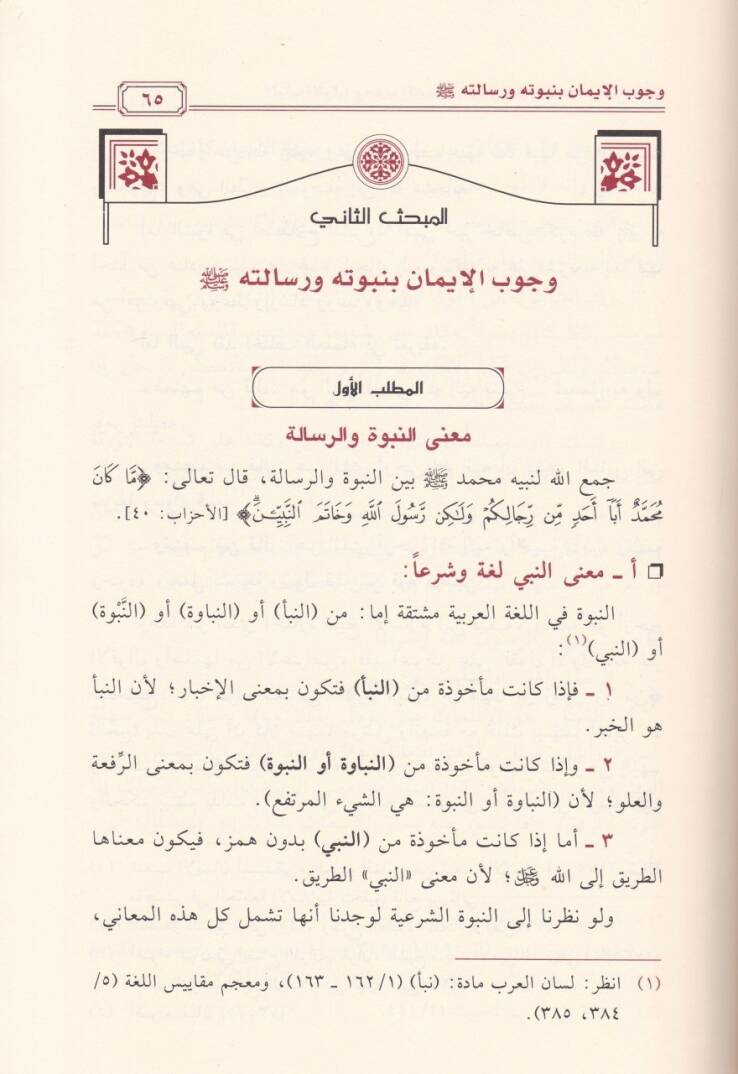 وجوب الإيمان بنبوته ورسالته ﷺ
٦٥
المبحث الثاني
وجوب الإيمان بنبوته ورسالته ﷺ
المطلب الأول
معنى النبوة والرسالة
جمع الله لنبيه محمد ﷺ بين النبوة والرسالة، قال تعالى: ﴿مَّا كَانَ
مُحَمَّدٌ أَبَآ أَحَدٍ مِّن رِّجَالِكُمْ وَلَٰكِن رَّسُولَ اللَّهِ وَخَاتَمَ النَّبِيِّـۧنَۗ﴾ [الأحزاب: ٤٠].
❒ أ ـ معنى النبي لغة وشرعاً:
النبوة في اللغة العربية مشتقة إما: من (النبأ) أو (النباوة) أو (النَّبْوة)
أو (النبي)(١):
١ ـ فإذا كانت مأخوذة من (النبأ) فتكون بمعنى الإخبار؛ لأن النبأ
هو الخبر.
٢ ـ وإذا كانت مأخوذة من (النباوة أو النبوة) فتكون بمعنى الرِّفعة
والعلو؛ لأن (النباوة أو النبوة: هي الشيء المرتفع).
٣ ـ أما إذا كانت مأخوذة من (النبي) بدون همز، فيكون معناها
الطريق إلى الله عز وجل؛ لأن معنى «النبي» الطريق.
ولو نظرنا إلى النبوة الشرعية لوجدنا أنها تشمل كل هذه المعاني،
(١) انظر: لسان العرب مادة: (نبأ) (١/ ١٦٢ ـ ١٦٣)، ومعجم مقاييس اللغة (٥/
٣٨٤، ٣٨٥).